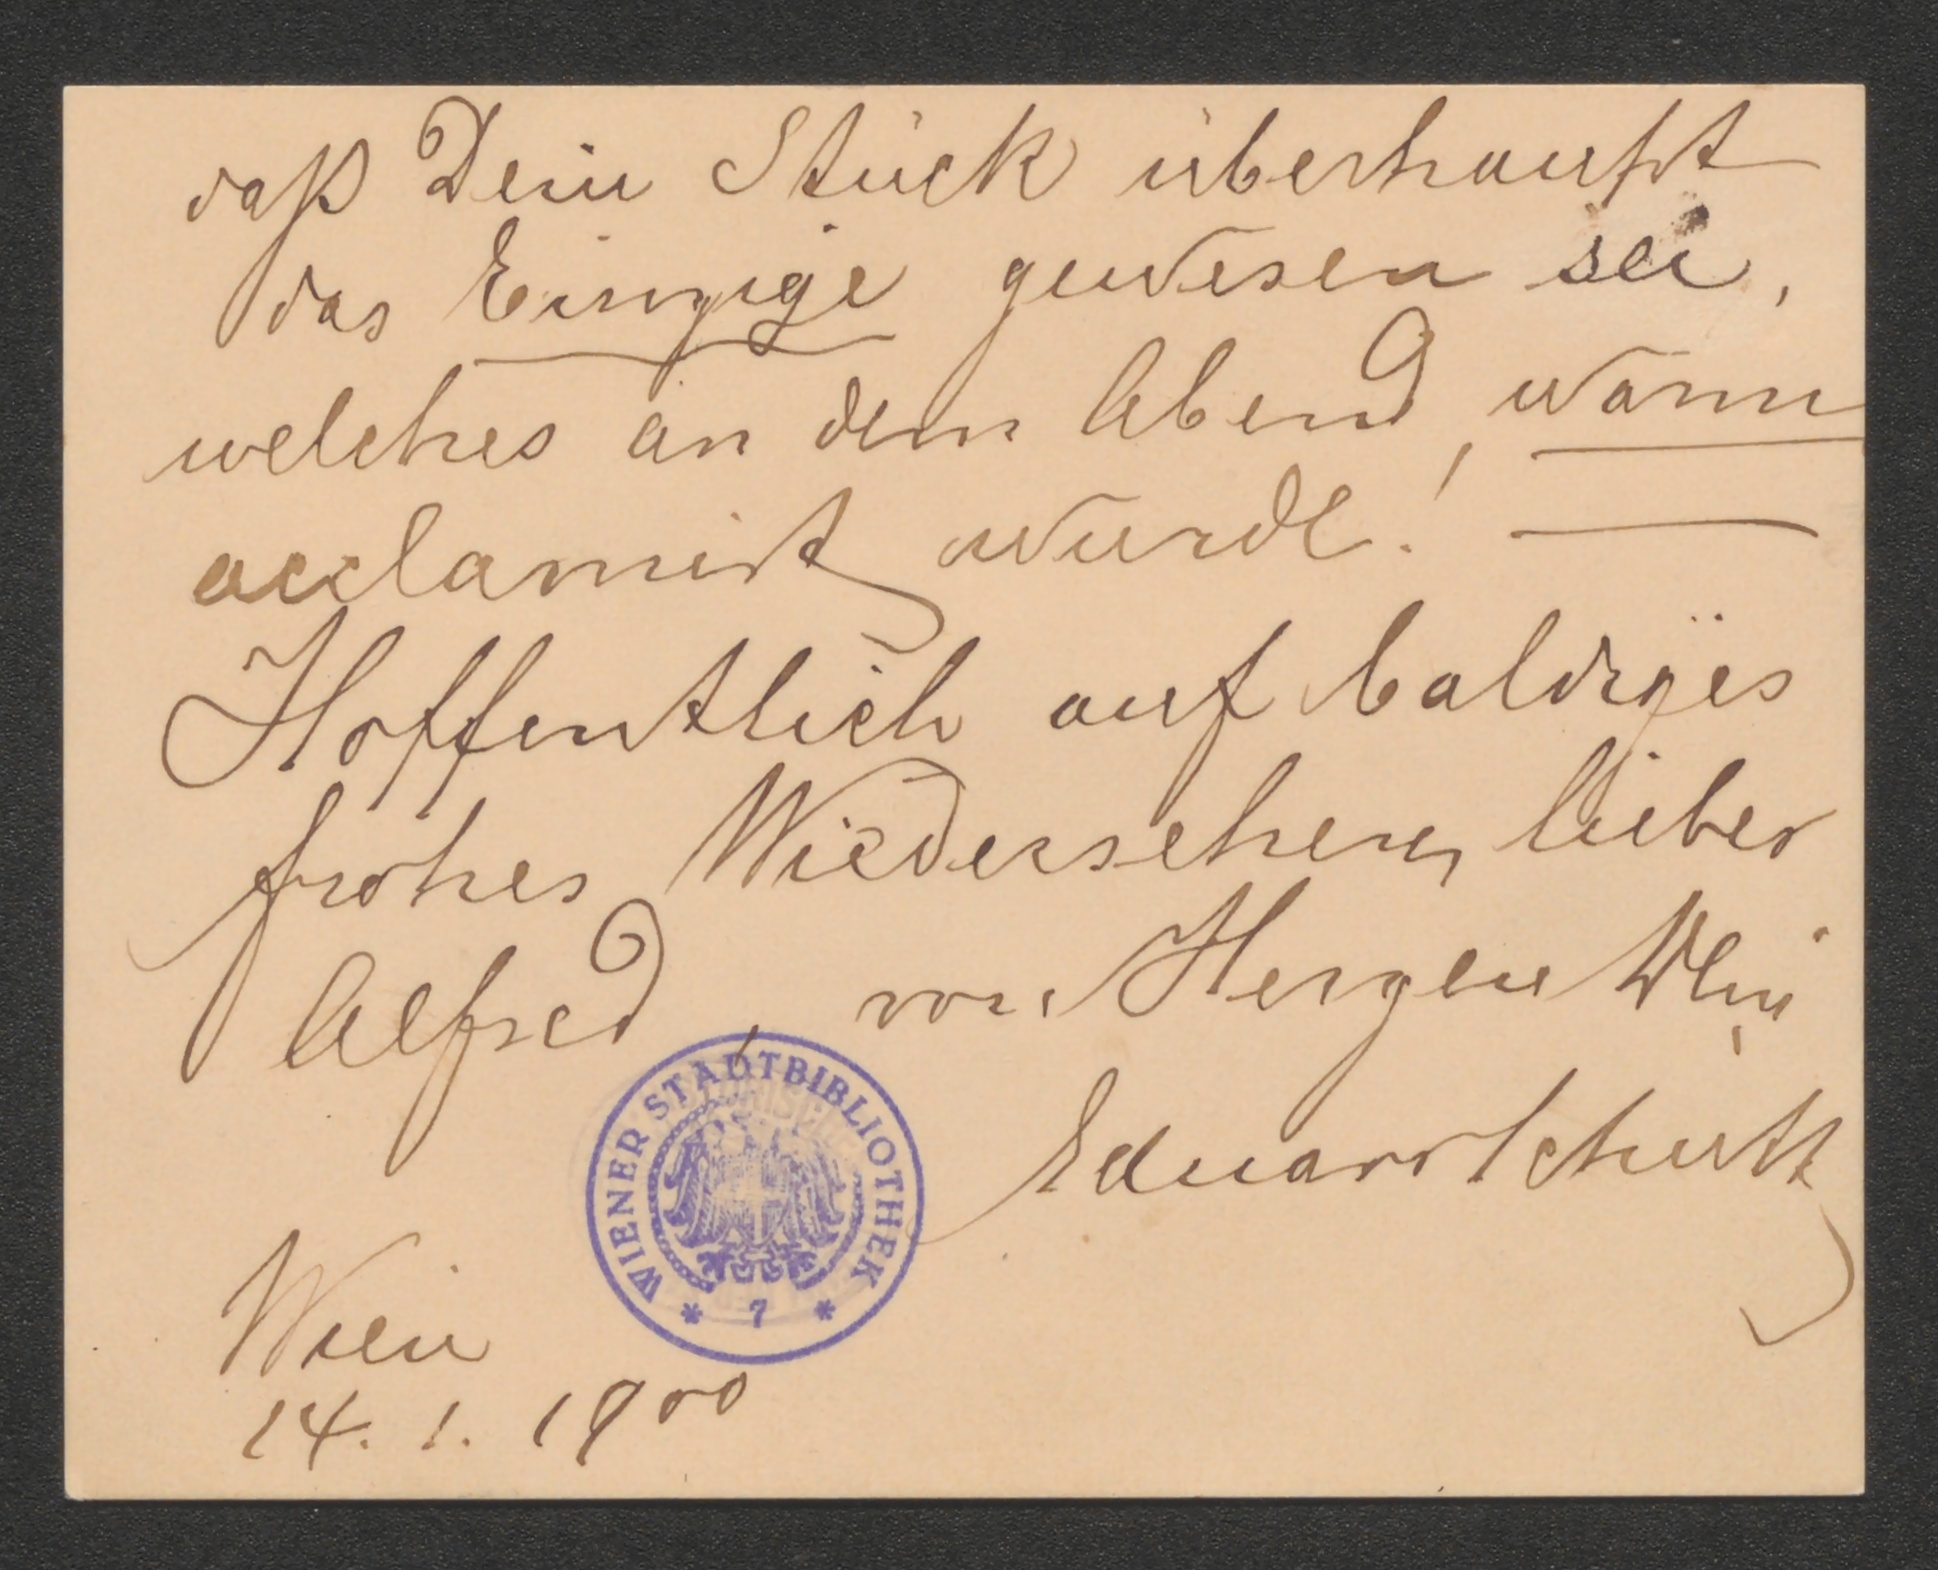 daß Dein Stück überhaupt
das Einzige gewesen sei,
welches an dem Abend, warm
acclamirt wurde! —
Hoffentlich auf baldiges
frohes Wiedersehen, lieber
Alfred, von Herzen Dein
Eduard Schütt
WIENER STADTBIBLIOTHEK
* 7 *
Wien
14. 1. 1900